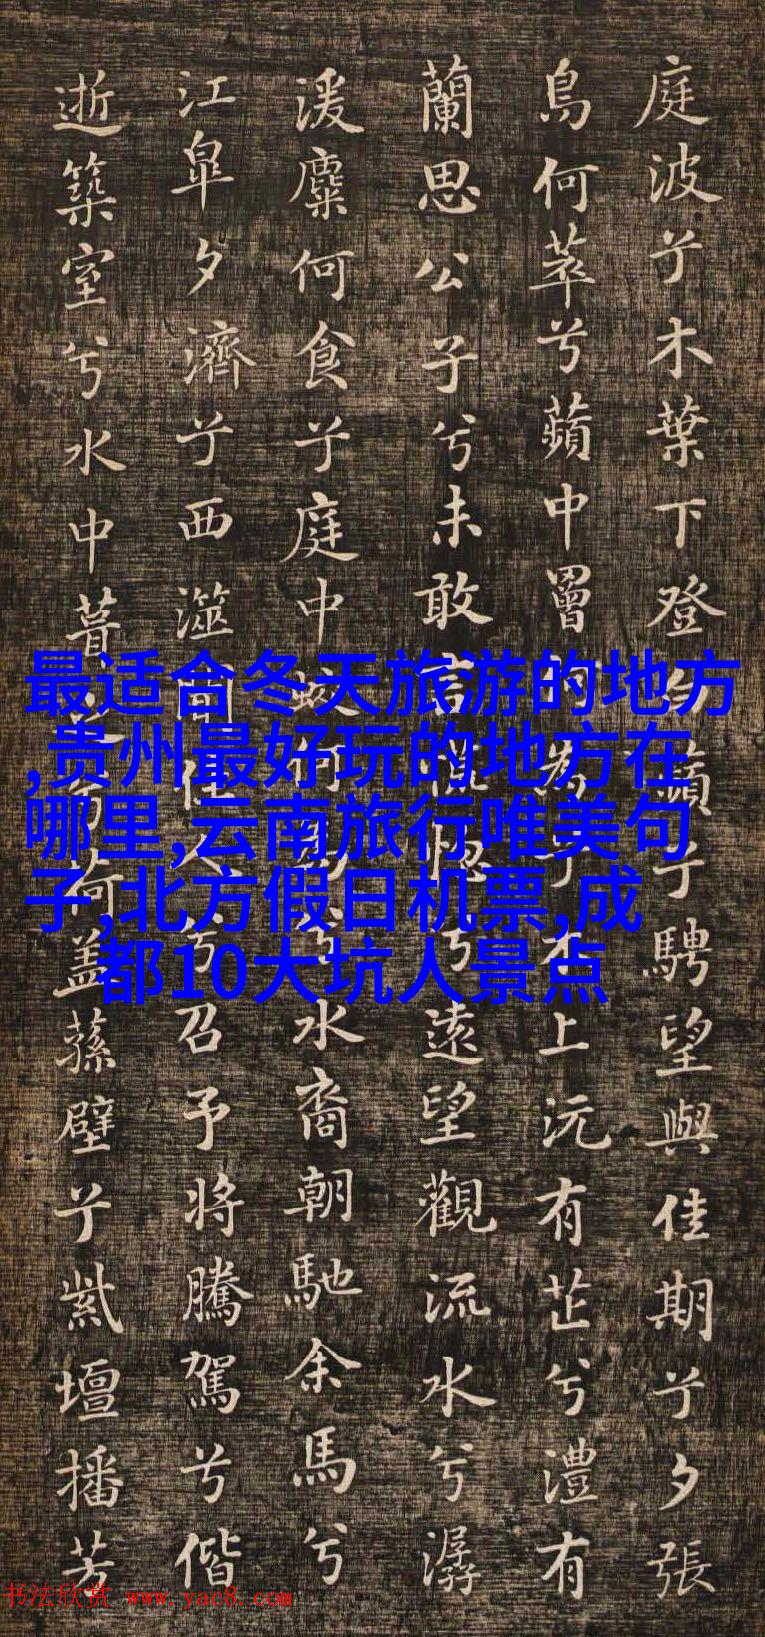 庭波兮木葉下登白蘋兮騁望與佳期兮夕張
鳥何萃兮蘋中罾何為兮木上沅有芷兮澧有
蘭思公子兮未敢言慌惚兮遠望觀流水兮潺
湲麋何食兮庭中蛟何為兮水裔朝馳余馬兮
江皐夕濟兮西澨聞佳人兮召予將騰駕兮偕
逝築室兮水中葺之兮荷盖蓀壁兮紫壇播芳
最适合冬天旅游的地方
,贵州最好玩的地方在
哪里,云南旅行唯美句
子,北方假日机票,成
都10大坑人景点
书法欣赏 www.yac8.com